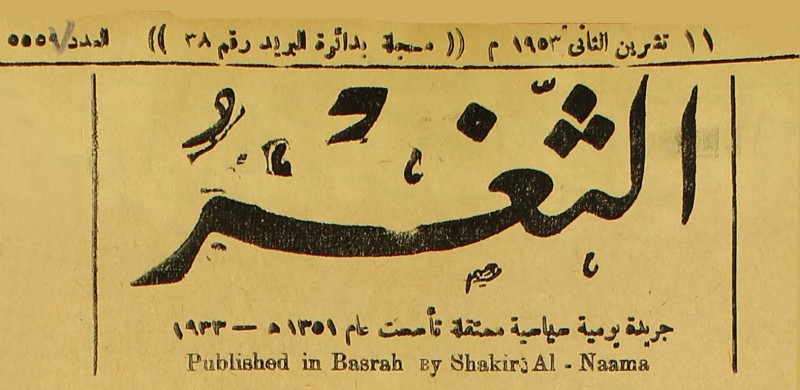 ١١ تشرين الثاني ١٩٥٣ م (( مسجلة بدائرة البريد رقم ٣٨ )) العدد ٥٥٥٩
الثَّغْرُ
جريدة يومية سياسية مستقلة تأسست عام ١٣٥١ هـ — ١٩٣٣
Published in Basrah By Shakir Al - Naama